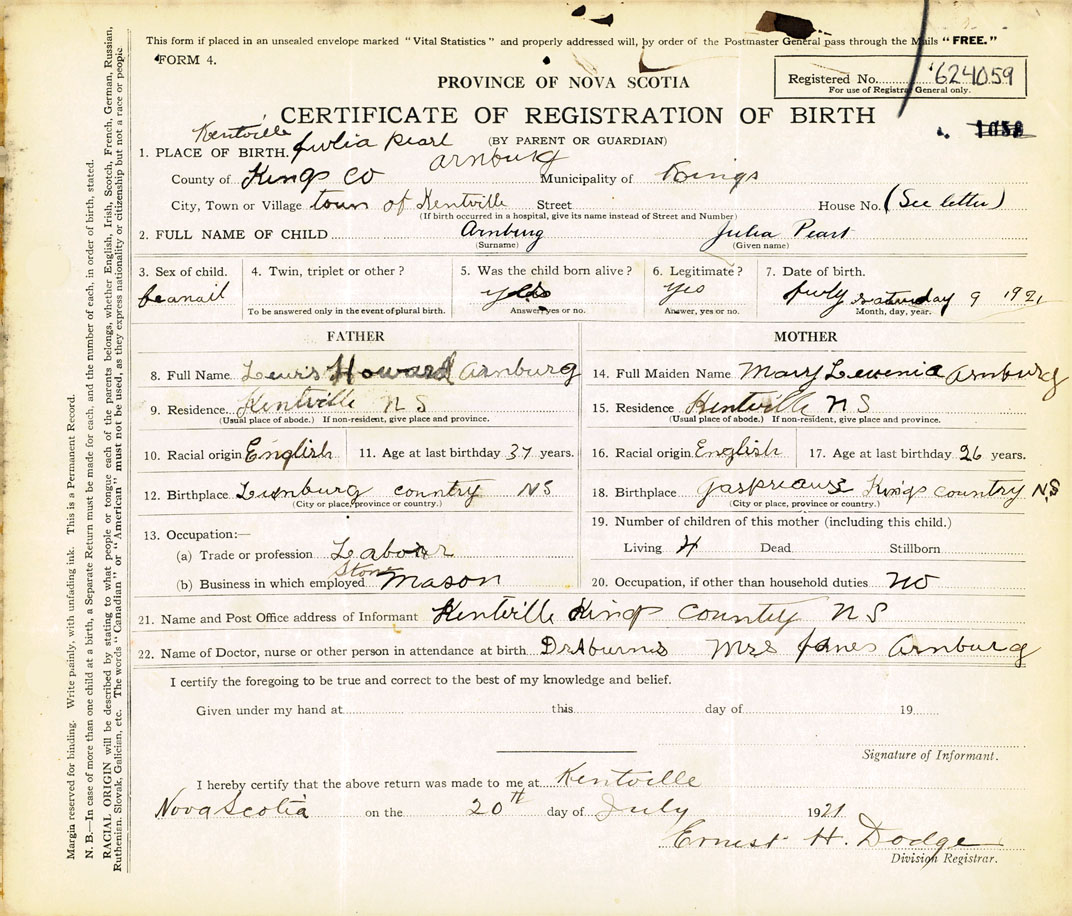 This form if placed in an unsealed envelope marked "Vital Statistics" and properly addressed will, by order of the Postmaster General pass through the Mails "FREE."
FORM 4.
PROVINCE OF NOVA SCOTIA
Registered No. 624059
For use of Registrar General only.
CERTIFICATE OF REGISTRATION OF BIRTH
(BY PARENT OR GUARDIAN)
Kentville
1. PLACE OF BIRTH. Julia Pearl Arnburg
County of Kings Co Municipality of Kings
City, Town or Village town of Kentville Street House No. (See letter)
(If birth occurred in a hospital, give its name instead of Street and Number)
2. FULL NAME OF CHILD Arnburg Julia Pearl
(Surname) (Given name)
3. Sex of child. 4. Twin, triplet or other? 5. Was the child born alive? 6. Legitimate? 7. Date of birth.
feamail yes yes July saturday 9 1921
To be answered only in the event of plural birth. Answer, yes or no. Answer, yes or no. Month, day, year.
FATHER MOTHER
8. Full Name Lewis Howard Arnburg 14. Full Maiden Name Mary Arnburg
9. Residence Kentville N S 15. Residence Kentville N S
(Usual place of abode.) If non-resident, give place and province. (Usual place of abode.) If non-resident, give place and province.
10. Racial origin English 11. Age at last birthday 37 years. 16. Racial origin English 17. Age at last birthday 26 years.
12. Birthplace Lunburg country NS 18. Birthplace Kings country NS
(City or place, province or country.) (City or place, province or country.)
19. Number of children of this mother (including this child.)
13. Occupation:—
(a) Trade or profession Laborr Living 4 Dead Stillborn
(b) Business in which employed Stone Mason 20. Occupation, if other than household duties no
21. Name and Post Office address of Informant Kentville Kings country N S
22. Name of Doctor, nurse or other person in attendance at birth. Mrs James Arnburg
I certify the foregoing to be true and correct to the best of my knowledge and belief.
Given under my hand at this day of 19
Signature of Informant.
I hereby certify that the above return was made to me at Kentville
Nova Scotia on the 20th day of July 1921
Ernest H. Dodge
Division Registrar.
Margin reserved for binding. Write plainly, with unfading ink. This is a Permanent Record.
N. B.—In case of more than one child at a birth, a Separate Return must be made for each, and the number of each, in order of birth, stated.
RACIAL ORIGIN will be described by stating to what people or tongue each of the parents belongs, whether English, Irish, Scotch, French, German, Russian,
Ruthenian, Slovak, Galician, etc. The words "Canadian" or "American" must not be used, as they express nationality or citizenship but not a race or people.